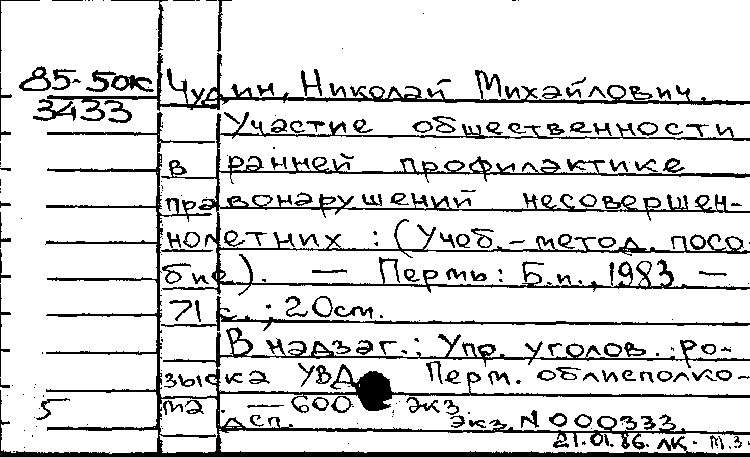 85-5ок Чудин, Николай Михайлович.
3433
Участие общественности
в ранней профилактике
правонарушений несовершен-
нолетних : (Учеб.-метод. посо-
бие). — Пермь : Б.и., 1983. —
71 с. ; 20 см.
В надзаг.: Упр. уголов. ро-
зыска УВД Перм. облисполко-
ма. — 600 экз.
5 дсп. Экз. N 000333.
21.01.86. ЛК. М.З.